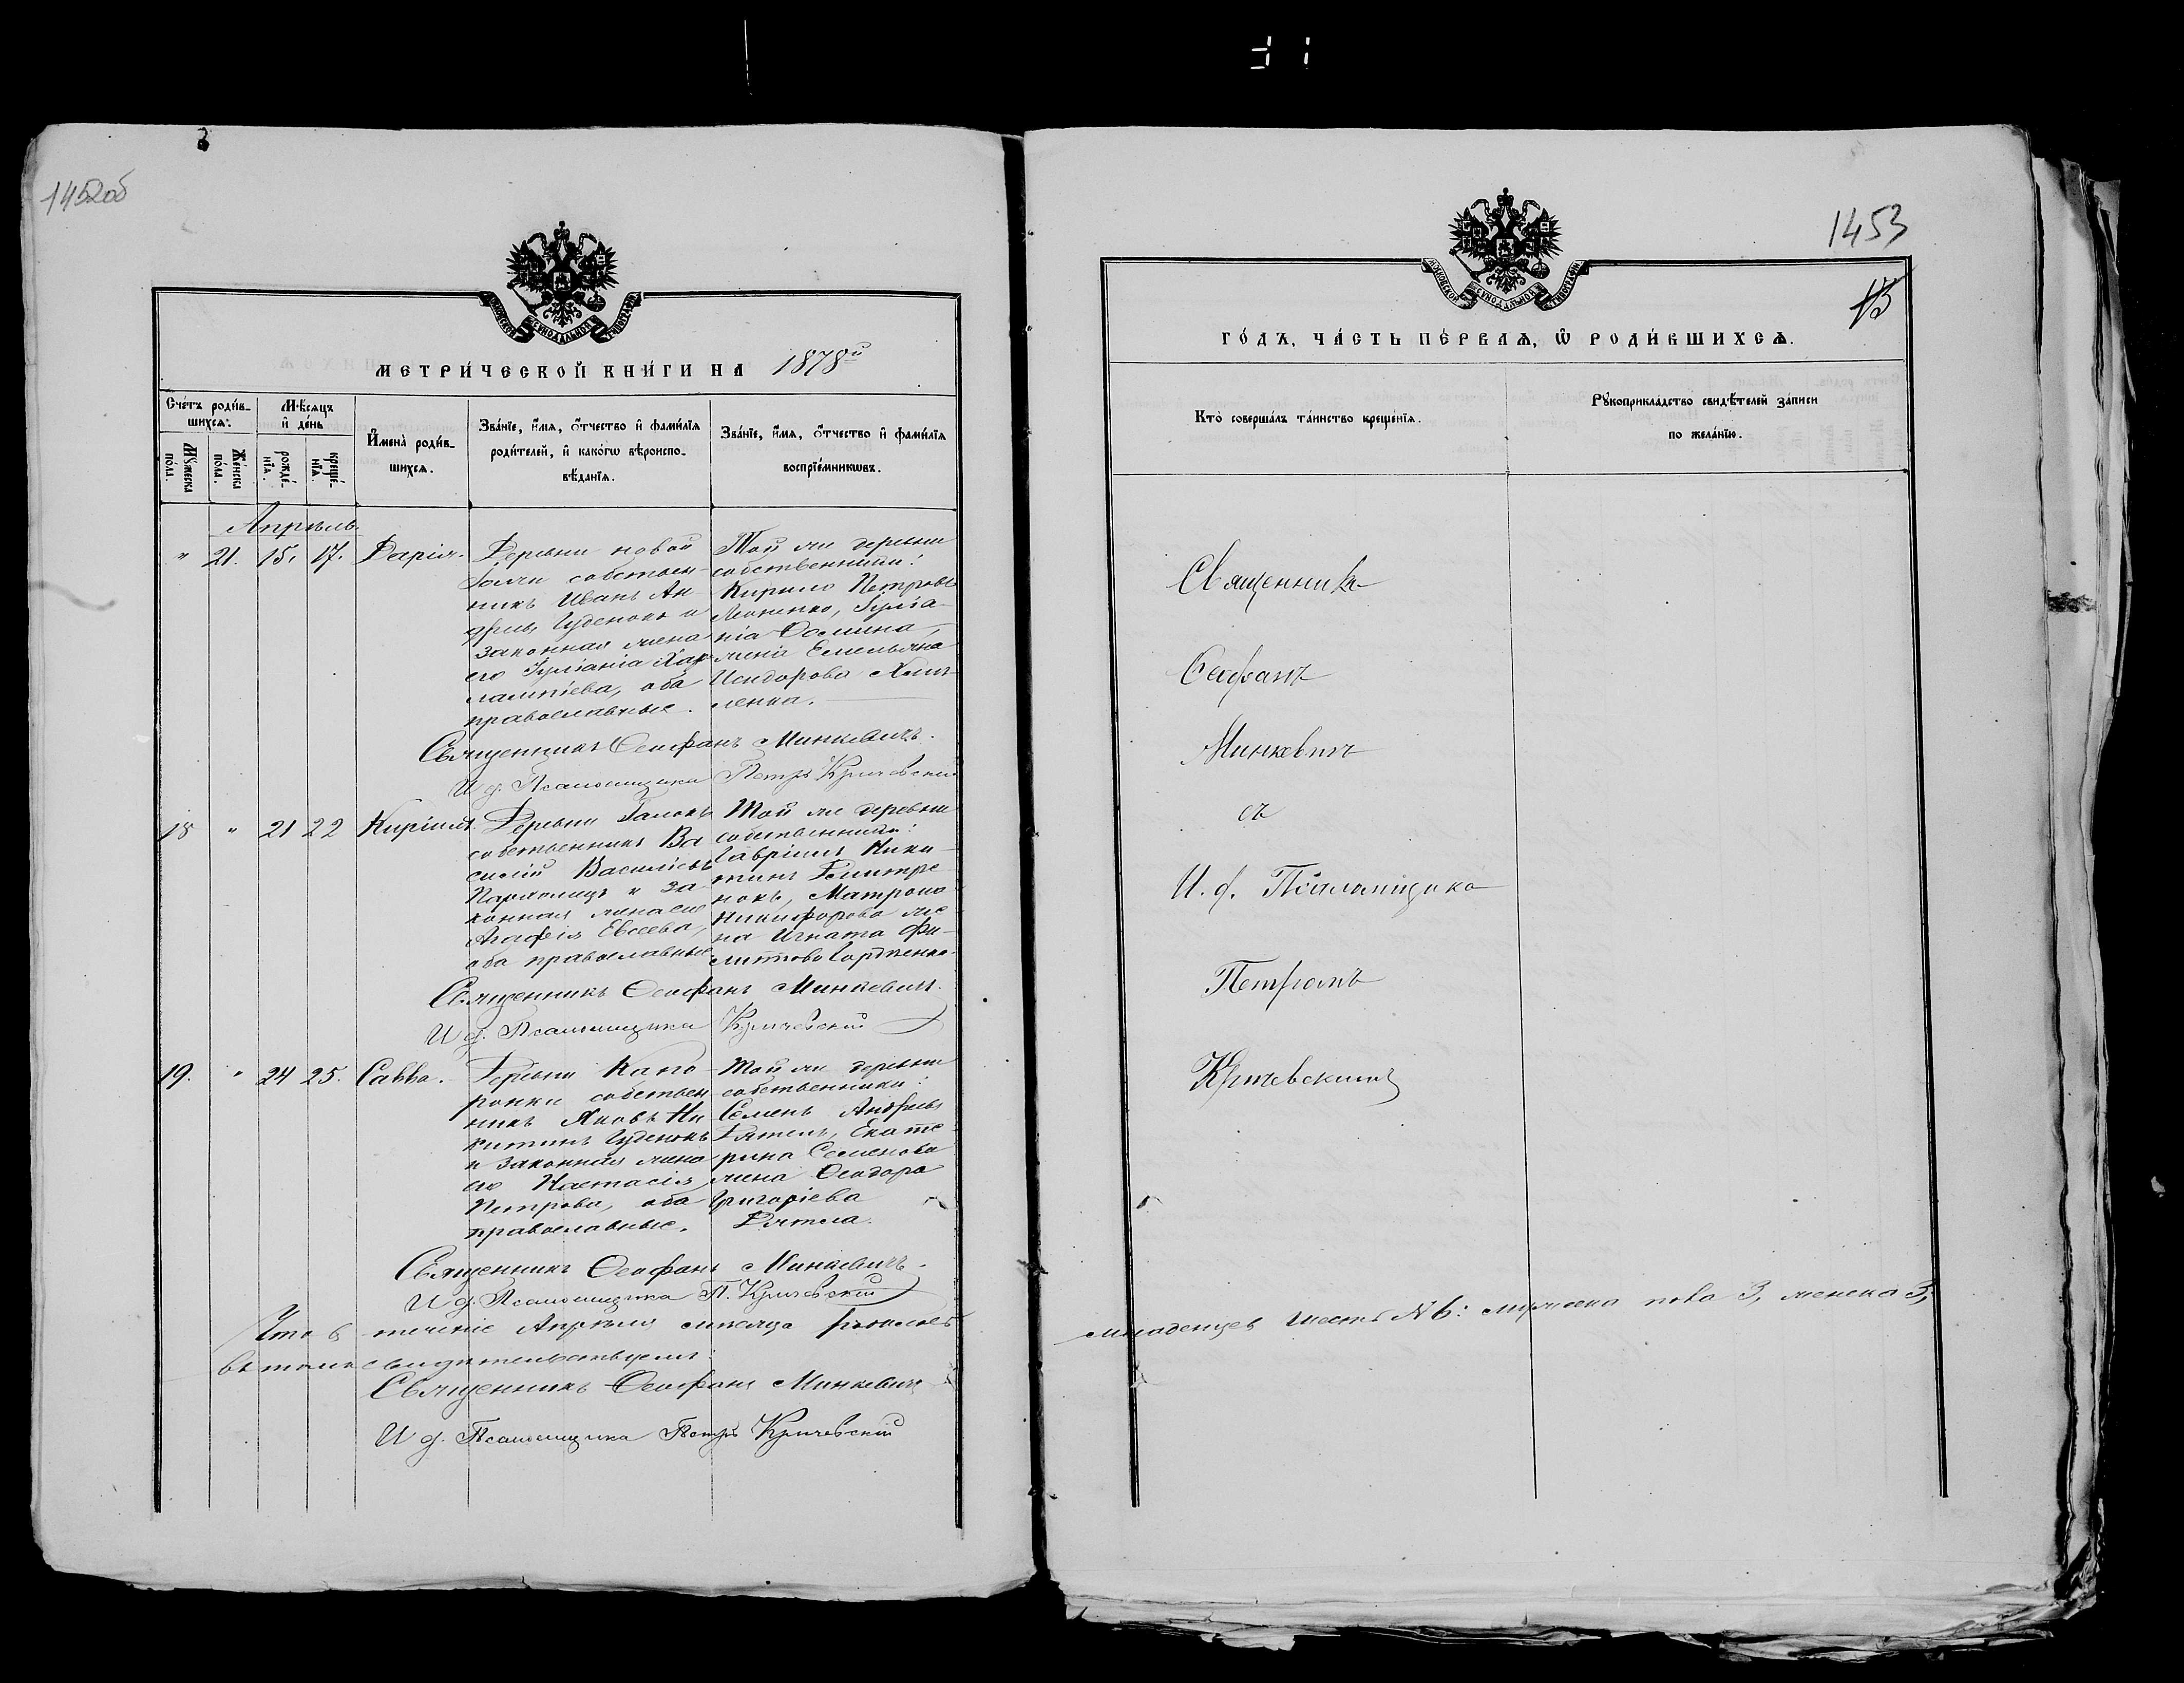 1452об
МЕТРИ́ЧЕСКОЙ КНИ́ГИ НА 1878й
Счéтъ роди́в-
шихсѧ:
Мꙋ́жеска
по́ла.
Же́нска
по́ла.
Мѣ́сѧцъ
и҆ де́нь
рожде́-
нїѧ.
креще́-
нїѧ.
И҆мена̀ роди́в-
шихсѧ.
Зва́нїе, и҆́мѧ, ѻ҆́тчество и҆ фами́лїѧ
роди́телей, и҆ како́гѡ вѣроиспо-
вѣ́данїѧ.
Зва́нїе, и҆́мѧ, ѻ҆́тчество и҆ фами́лїѧ
воспрїе́мникѡвъ.
Апрѣль.
" 21. 15. 17. Дарія.
Деревни новой
собствен-
никъ Иванъ Ан-
дреевъ Гуденокъ и
законная жена
его Іуліанія Хар-
лампіева, оба
православные.
Той же деревни
собственники:
Кирило Петровъ
Іуліа-
нія Ѳомина,
жена Емельяна
Исидорова
Священникъ Ѳеофанъ Минкевичъ.
И д. Псаломщика Петръ Кричевскій
18 " 21 22 Кириллъ.
Деревни Галокъ
собственникъ Ва
силій Васильевъ
и за
конная жена его
Агафія Евсеева,
оба православные
Той же деревни
собственники:
Гавріилъ Ники-
тинъ Дмитре
нокъ, Матрона
Никифорова же
на Игната Фи-
липпова Гордиенка.
Священникъ Ѳеофанъ Минкевичъ.
И д. Псаломщика Кричевскій
19. " 24 25. Савва.
Деревни Капо
ронки собствен
никъ Яковъ Ни
китинъ Гуденокъ
и законная жена
его Настасія
Петрова, оба
православные.
Той же деревни
собственники:
Семенъ Андреевъ
Дятелъ, Екате
рина Семенова
жена Ѳеодора
Григоріева
Дятела.
Священникъ Ѳеофанъ Минкевичъ.
И д. Псаломщика П. Кричевскій
Что в теченіе Апрѣля мѣсяца
въ томъ свидѣтельствуемъ:
Священникъ Ѳеофанъ Минкевичъ
И д. Псаломщика Петръ Кричевскій
1453
ГО́ДЪ, ЧА́СТЬ ПЕ́РВАѦ, Ѡ҆ РОДИ́ВШИХСѦ.
Кто̀ соверша́лъ та́инство креще́нїѧ.
Рꙋкоприкла́дство свидѣ́телей за́писи
по жела́нїю.
Священникъ
Ѳеофанъ
Минкевичъ
съ
И. д. Псаломщика
Петромъ
Кричевскимъ
младенцев шесть № 6: мужеска пола 3, женска 3,